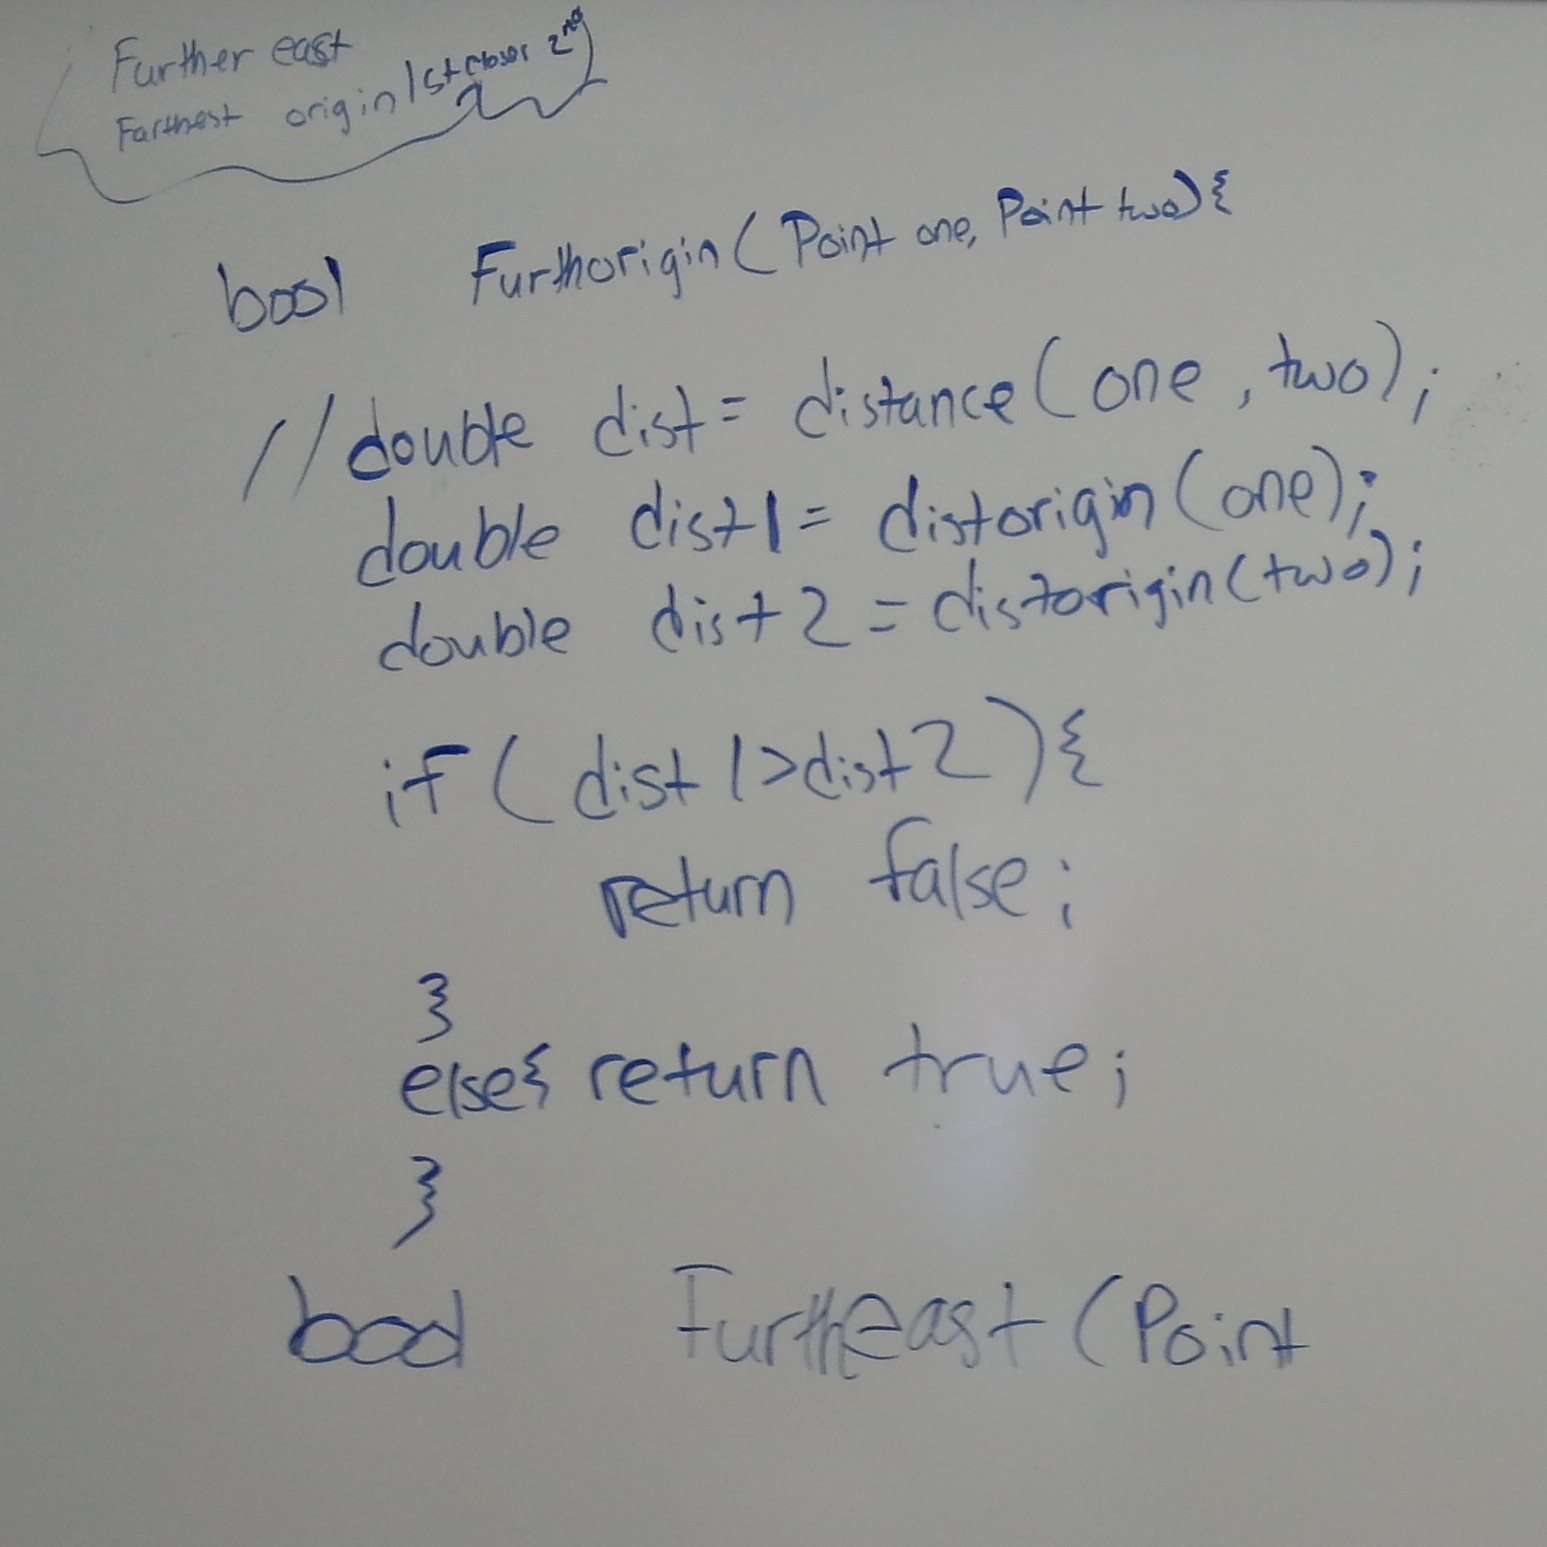 Further east
Farthest origin 1st closer 2nd
bool Furthorigin(Point one, Point two){
//double dist= distance(one, two);
double dist1= distorigin(one);
double dist2=distorigin(two);
if(dist1>dist2){
return false;
}
else{ return true;
}
bool Furtheast(Point